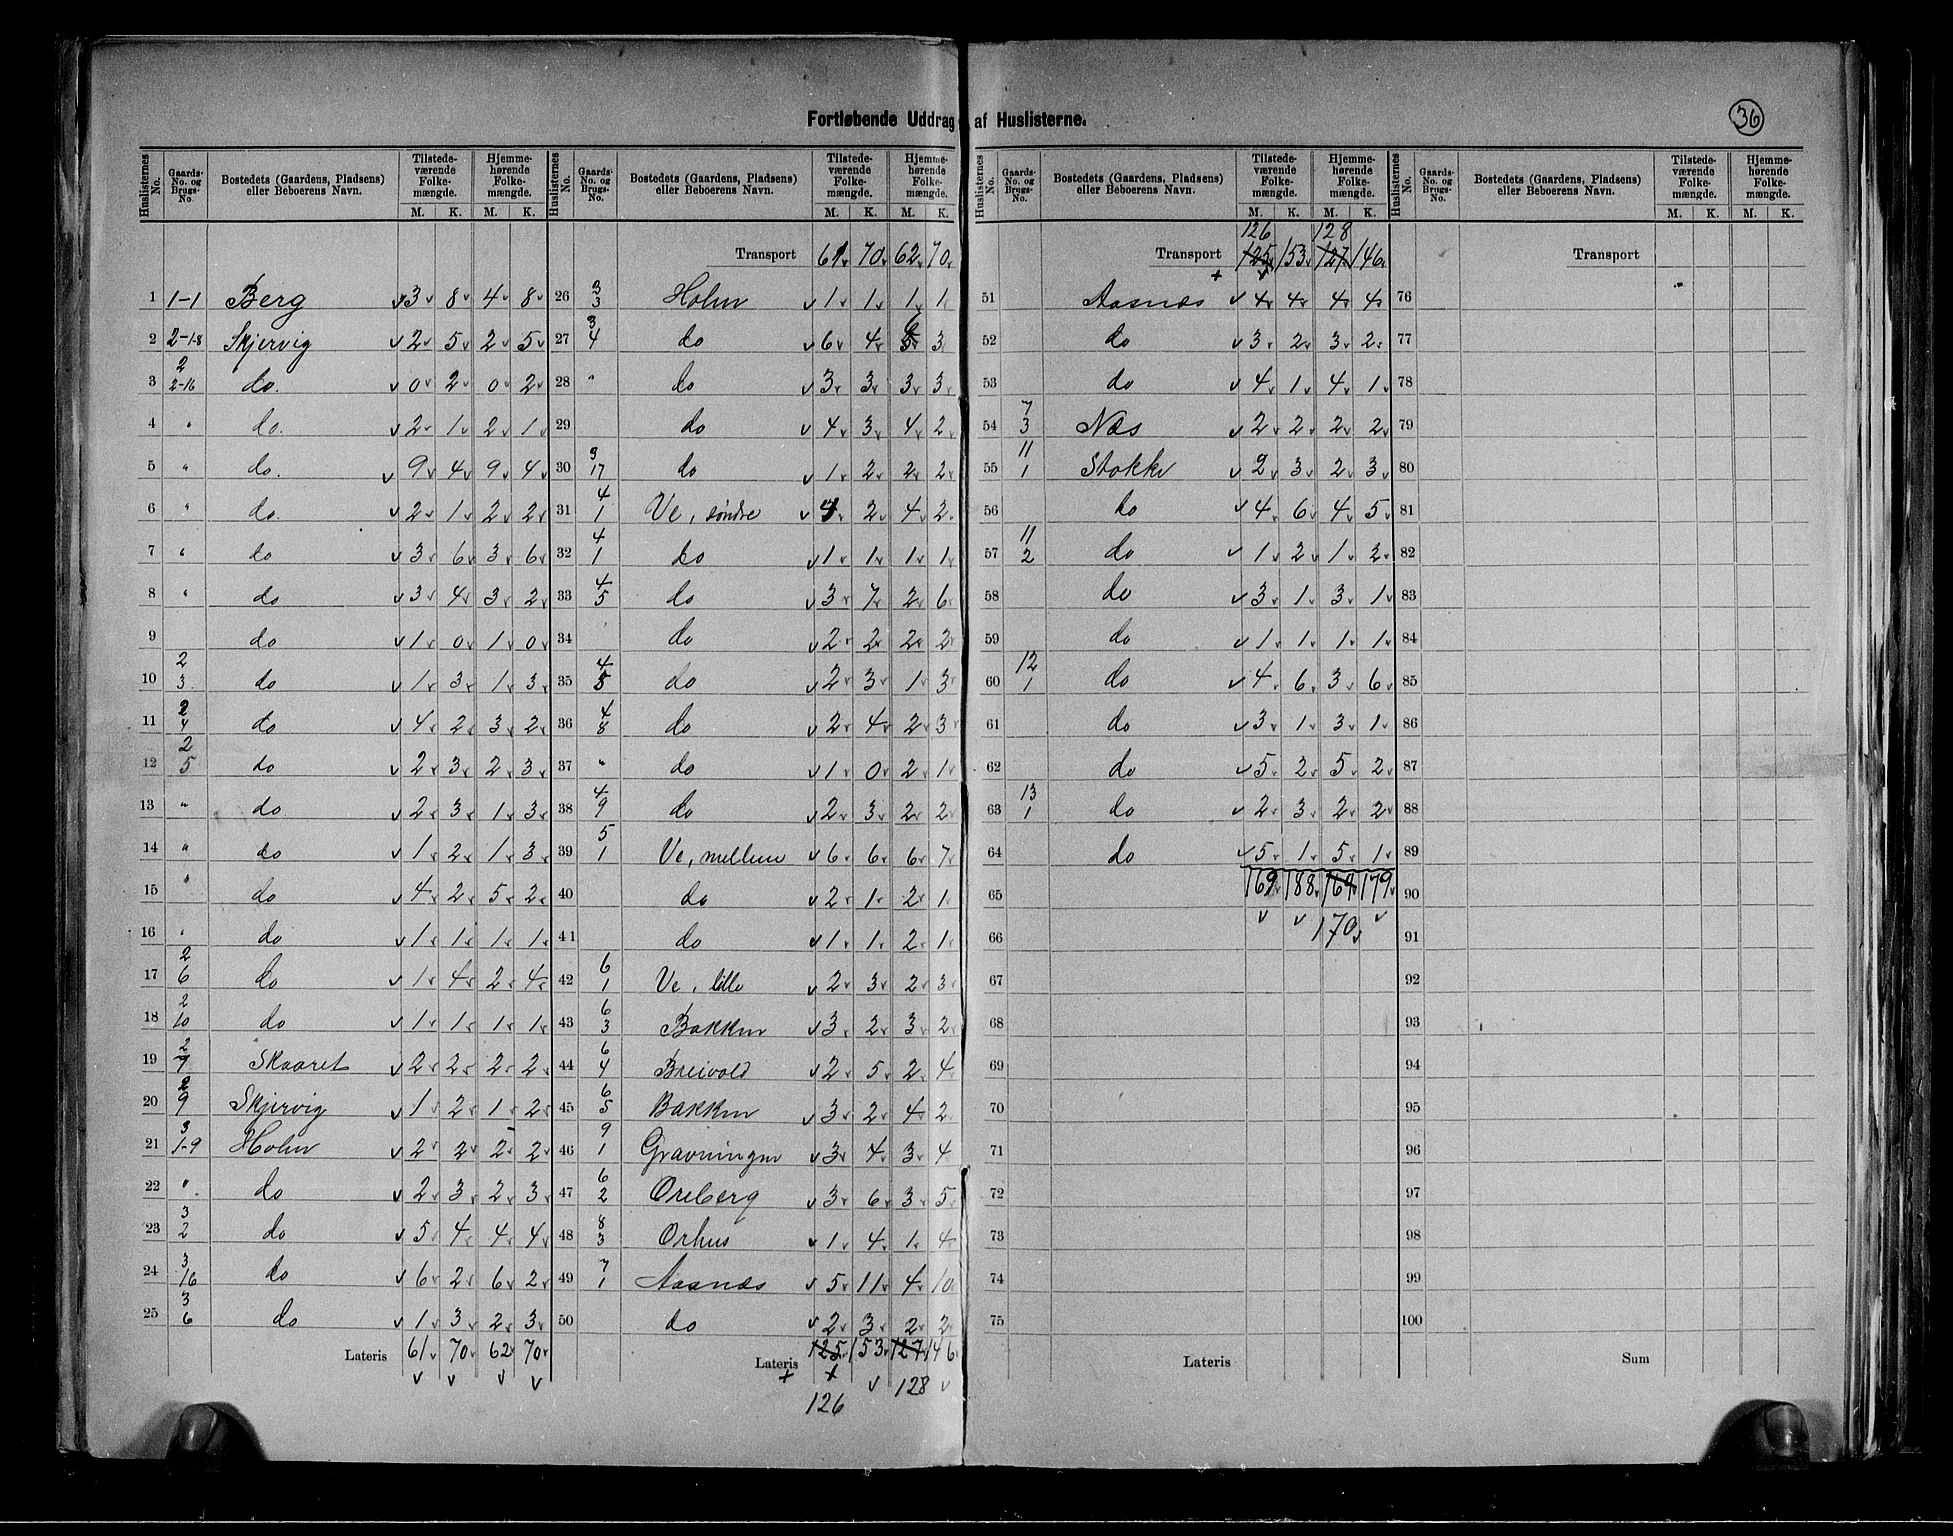 Fortløbende Uddrag af Huslisterne.
36
Huslisternes No. | Gaards-No. og Brugs-No. | Bostedets (Gaardens, Pladsens) eller Beboerens Navn. | Tilstedeværende Folkemængde. M. K. | Hjemmehørende Folkemængde. M. K.
1 1-1 Berg 3 8 4 8
2 2-1.8 Skjervig 2 5 2 5
3 2 2-16 do. 0 2 0 2
4 " do. 2 1 2 1
5 " do. 9 4 9 4
6 " do. 2 1 2 2
7 " do 3 6 3 6
8 " do 3 4 3 2
9 do 1 0 1 0
10 2 3 do 1 3 1 3
11 2 4 do 4 2 3 2
12 2 5 do 2 3 2 3
13 " do 2 3 1 3
14 " do 1 2 1 3
15 " do 4 2 5 2
16 " do 1 1 1 1
17 2 6 do 1 4 2 4
18 2 10 do 1 1 1 1
19 2 7 Skaaret 2 2 2 2
20 2 9 Skjervig 1 2 1 2
21 3 1-9 Holm 2 2 2 2
22 " do 2 3 2 3
23 3 2 do 5 4 4 4
24 3 16 do 6 2 6 2
25 3 6 do 1 3 2 3
Lateris 61 70 62 70
Huslisternes No. | Gaards-No. og Brugs-No. | Bostedets (Gaardens, Pladsens) eller Beboerens Navn. | Tilstedeværende Folkemængde. M. K. | Hjemmehørende Folkemængde. M. K.
Transport 61 70 62 70
26 3 3 Holm 1 1 1 1
27 3 4 do 6 4 6 3
28 " do 3 3 3 3
29 do 4 3 4 2
30 3 17 do 1 2 2 2
31 4 1 Ve, søndre 4 2 4 2
32 4 1 do 1 1 1 1
33 4 5 do 3 7 2 6
34 do 2 2 2 2
35 4 5 do 2 3 1 3
36 4 8 do 2 4 2 3
37 " do 1 0 2 1
38 4 9 do 2 3 2 2
39 5 1 Ve, mellem 6 6 6 7
40 do 2 1 2 1
41 do 1 1 2 1
42 6 1 Ve, lille 2 3 2 3
43 6 3 Bakken 3 2 3 2
44 6 4 Breivold 2 5 2 4
45 6 5 Bakken 3 2 4 2
46 9 1 Gravningen 3 4 3 4
47 6 2 Oreberg 3 6 3 5
48 8 3 Orhus 1 4 1 4
49 7 1 Aasnæs 5 11 4 10
50 do 2 3 2 2
Lateris 125 153 127 146
126 128
Huslisternes No. | Gaards-No. og Brugs-No. | Bostedets (Gaardens, Pladsens) eller Beboerens Navn. | Tilstedeværende Folkemængde. M. K. | Hjemmehørende Folkemængde. M. K.
126 128
Transport 125 153 127 146
51 Aasnæs 4 4 4 4
52 do 3 2 3 2
53 do 4 1 4 1
54 7 3 Næs 2 2 2 2
55 11 1 Stokke 2 3 2 3
56 do 4 6 4 5
57 11 2 do 1 2 1 2
58 do 3 1 3 1
59 do 1 1 1 1
60 12 1 do 4 6 3 6
61 do 3 1 3 1
62 do 5 2 5 2
63 13 1 do 2 3 2 2
64 do 5 1 5 1
65 169 188 169 179
66 170
67
68
69
70
71
72
73
74
75
Lateris
Huslisternes No. | Gaards-No. og Brugs-No. | Bostedets (Gaardens, Pladsens) eller Beboerens Navn. | Tilstedeværende Folkemængde. M. K. | Hjemmehørende Folkemængde. M. K.
Transport
76
77
78
79
80
81
82
83
84
85
86
87
88
89
90
91
92
93
94
95
96
97
98
99
100
Sum